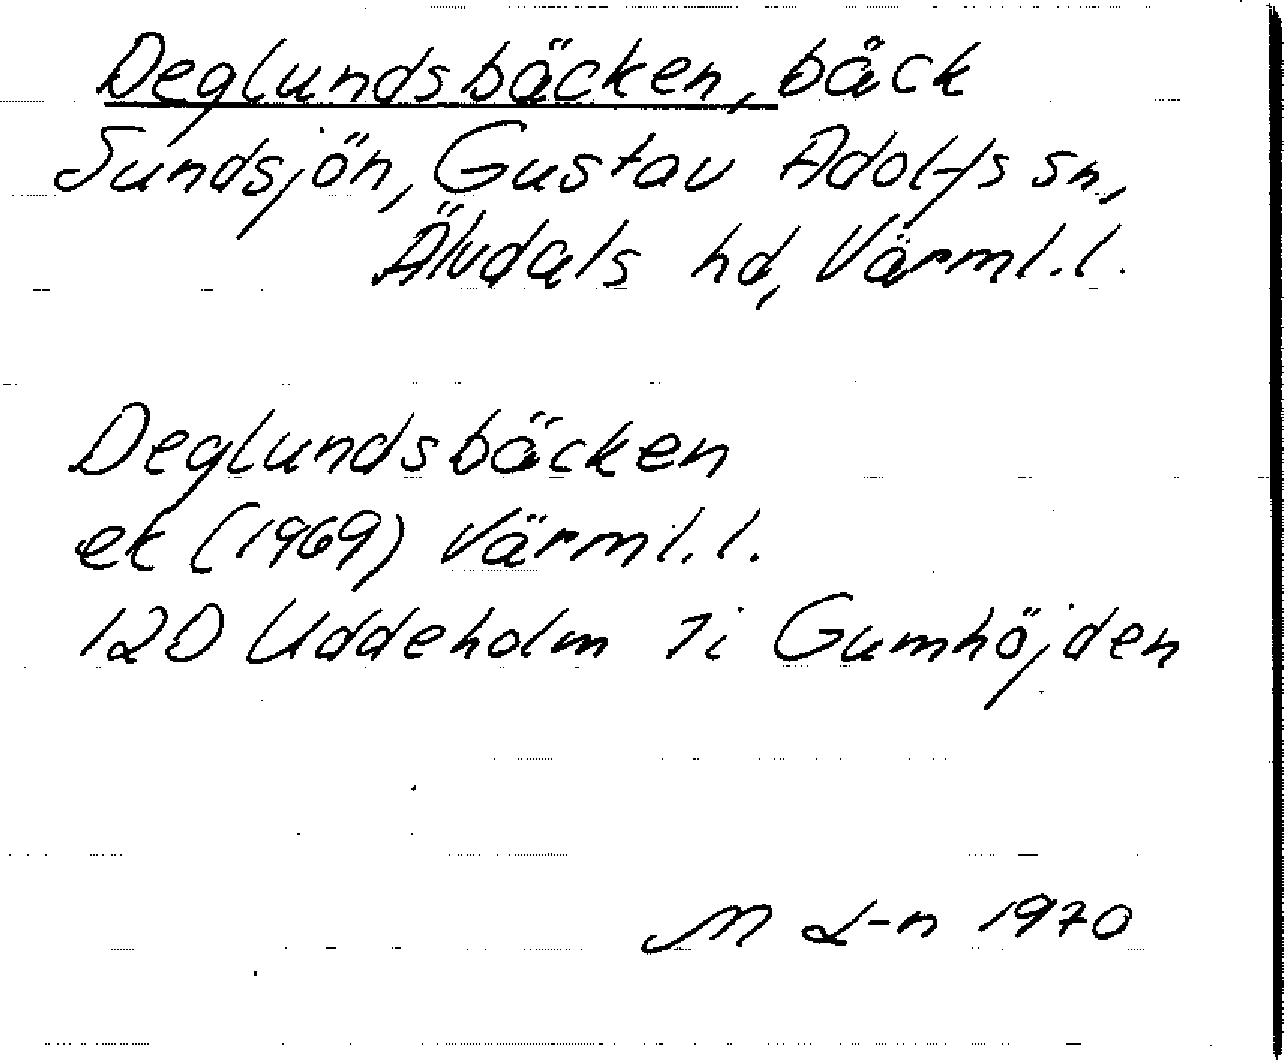 Deglundsbäcken, bäck
Sundsjön, Gustav Adolfs sn,
Älvdals hd, Värml.l.
Deglundsbäcken
ek (1969) Värml.l.
12D Uddeholm 7i Gumhöjden
M L-n 1970